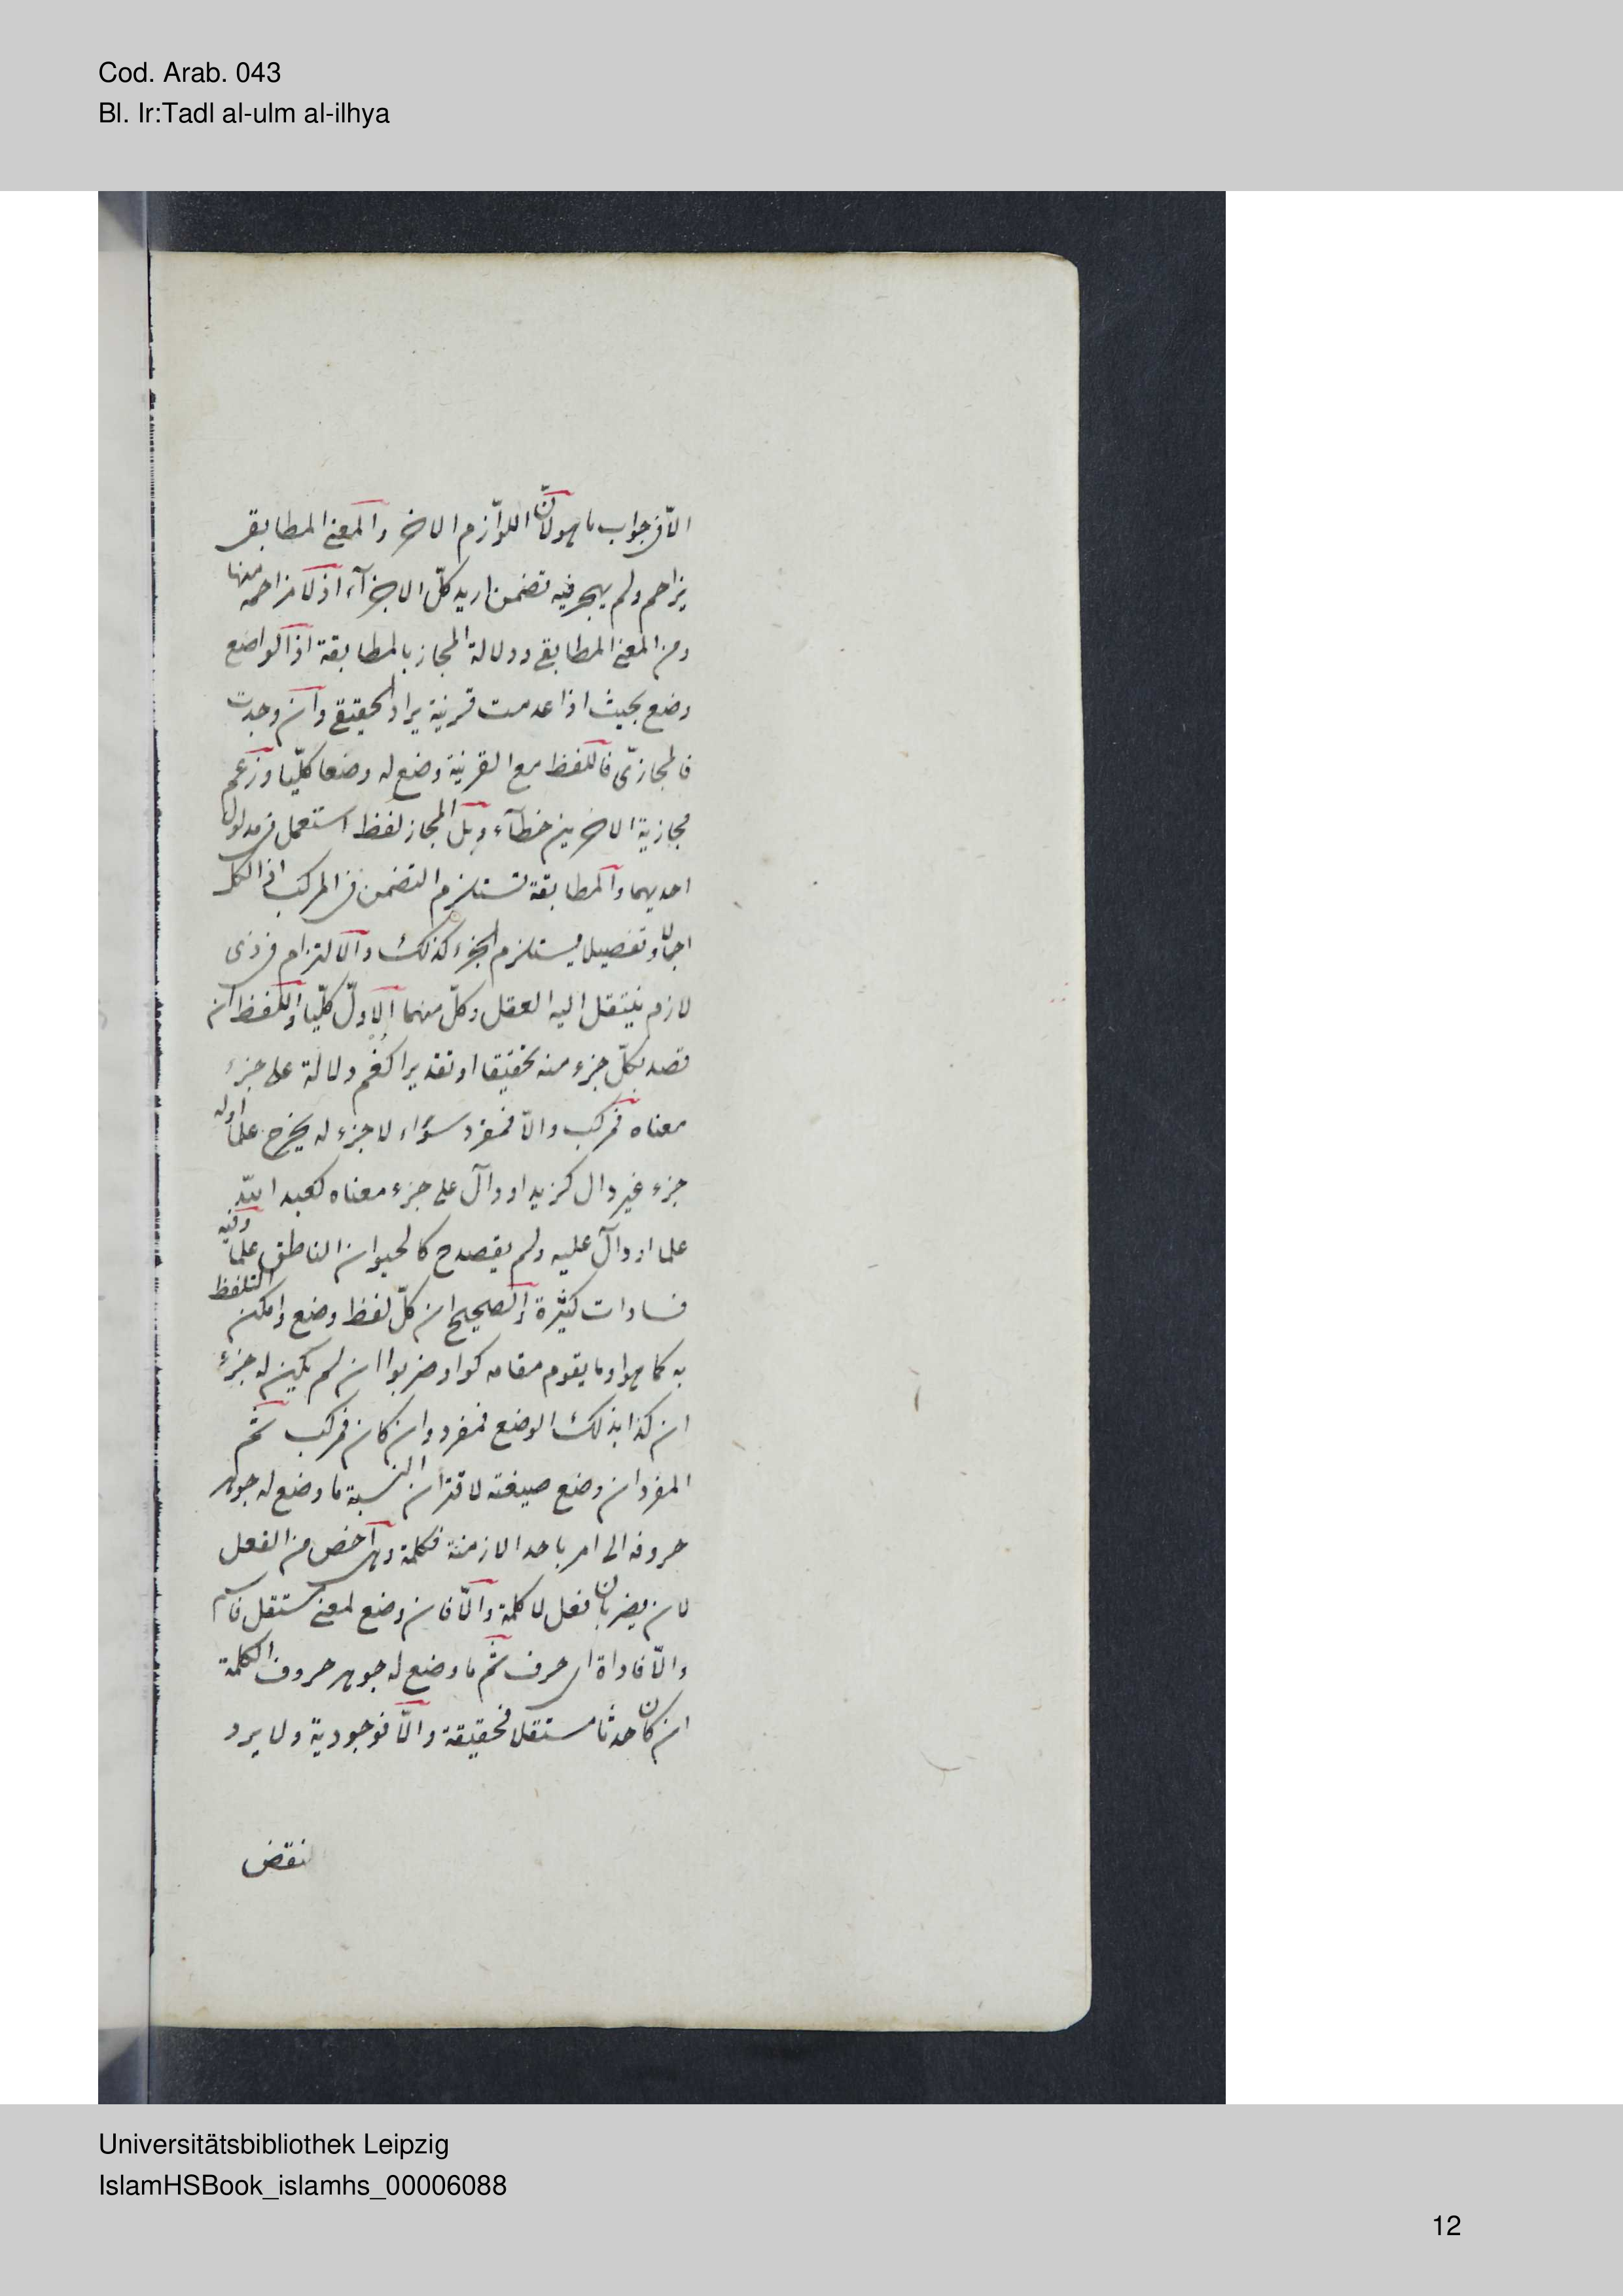 Cod. Arab. 043
Bl. Ir:Tadl al-ulm al-ilhya
الّا فى جواب ما هو لانّ اللوازم الاخر والمعنى المطابقى
يزاحم ولم يهجر فيه تضمن اريد كلّ الاجزآء اذ لا مزاحمة منها
ومن المعنى المطابقى ودلالة المجاز بالمطابقة اذ الواضع
وضع بحيث اذا عدمت قرينة يراد الحقيقى وان وجدت
فالمجازىّ فاللفظ مع القرينة وضع له وضعا كلّيا وزعم
مجازية الاخرين خطآء وبل المجاز لفظ استعمل فى مدلول
احديهما والمطابقة تستلزم التضمن فى المركب اذ الكل
اجمالا وتفصيلا يستلزم الجزء كذلك والالتزام فى ذى
لازم ينتقل اليه العقل وكلّ منهما الاوّل كلّيا واللفظ ان
قصد بكلّ جزء منه تحقيقا او تقديرا كقم دلالة على جزء
معناه فمركب والّا فمفرد سوآء لا جزء له يخرج علما او له
جزء غير دال كزيد او دآلّ على جزء معناه كعبد اللّه
علما او دآلّ عليه ولم يقصد ح كالحيوان الناطق علما وفيه
فسادات كثيرة والصحيح ان كلّ لفظ وضع وامكن التلفظ
به كما هو او ما يقوم مقامه كوا وضربوا ان لم يكن له جزء
ان كذا بذلك الوضع فمفرد وان كان فمركب ثمّ
المفرد ان وضع صيغته لاقتران النسبة ما وضع له جوهر
حروفه الى امر باحد الازمنة فكلمة وهى اخص من الفعل
لان يضربان فعل لا كلمة والّا فان وضع لمعنى مستقل فاسم
والّا فاداة اى حرف ثمّ ما وضع له جوهر حروف الكلمة
ان كان حدثا مستقلا فحقيقة والّا فوجودية ولا يرد
نقض
Universitätsbibliothek Leipzig
IslamHSBook_islamhs_00006088
12